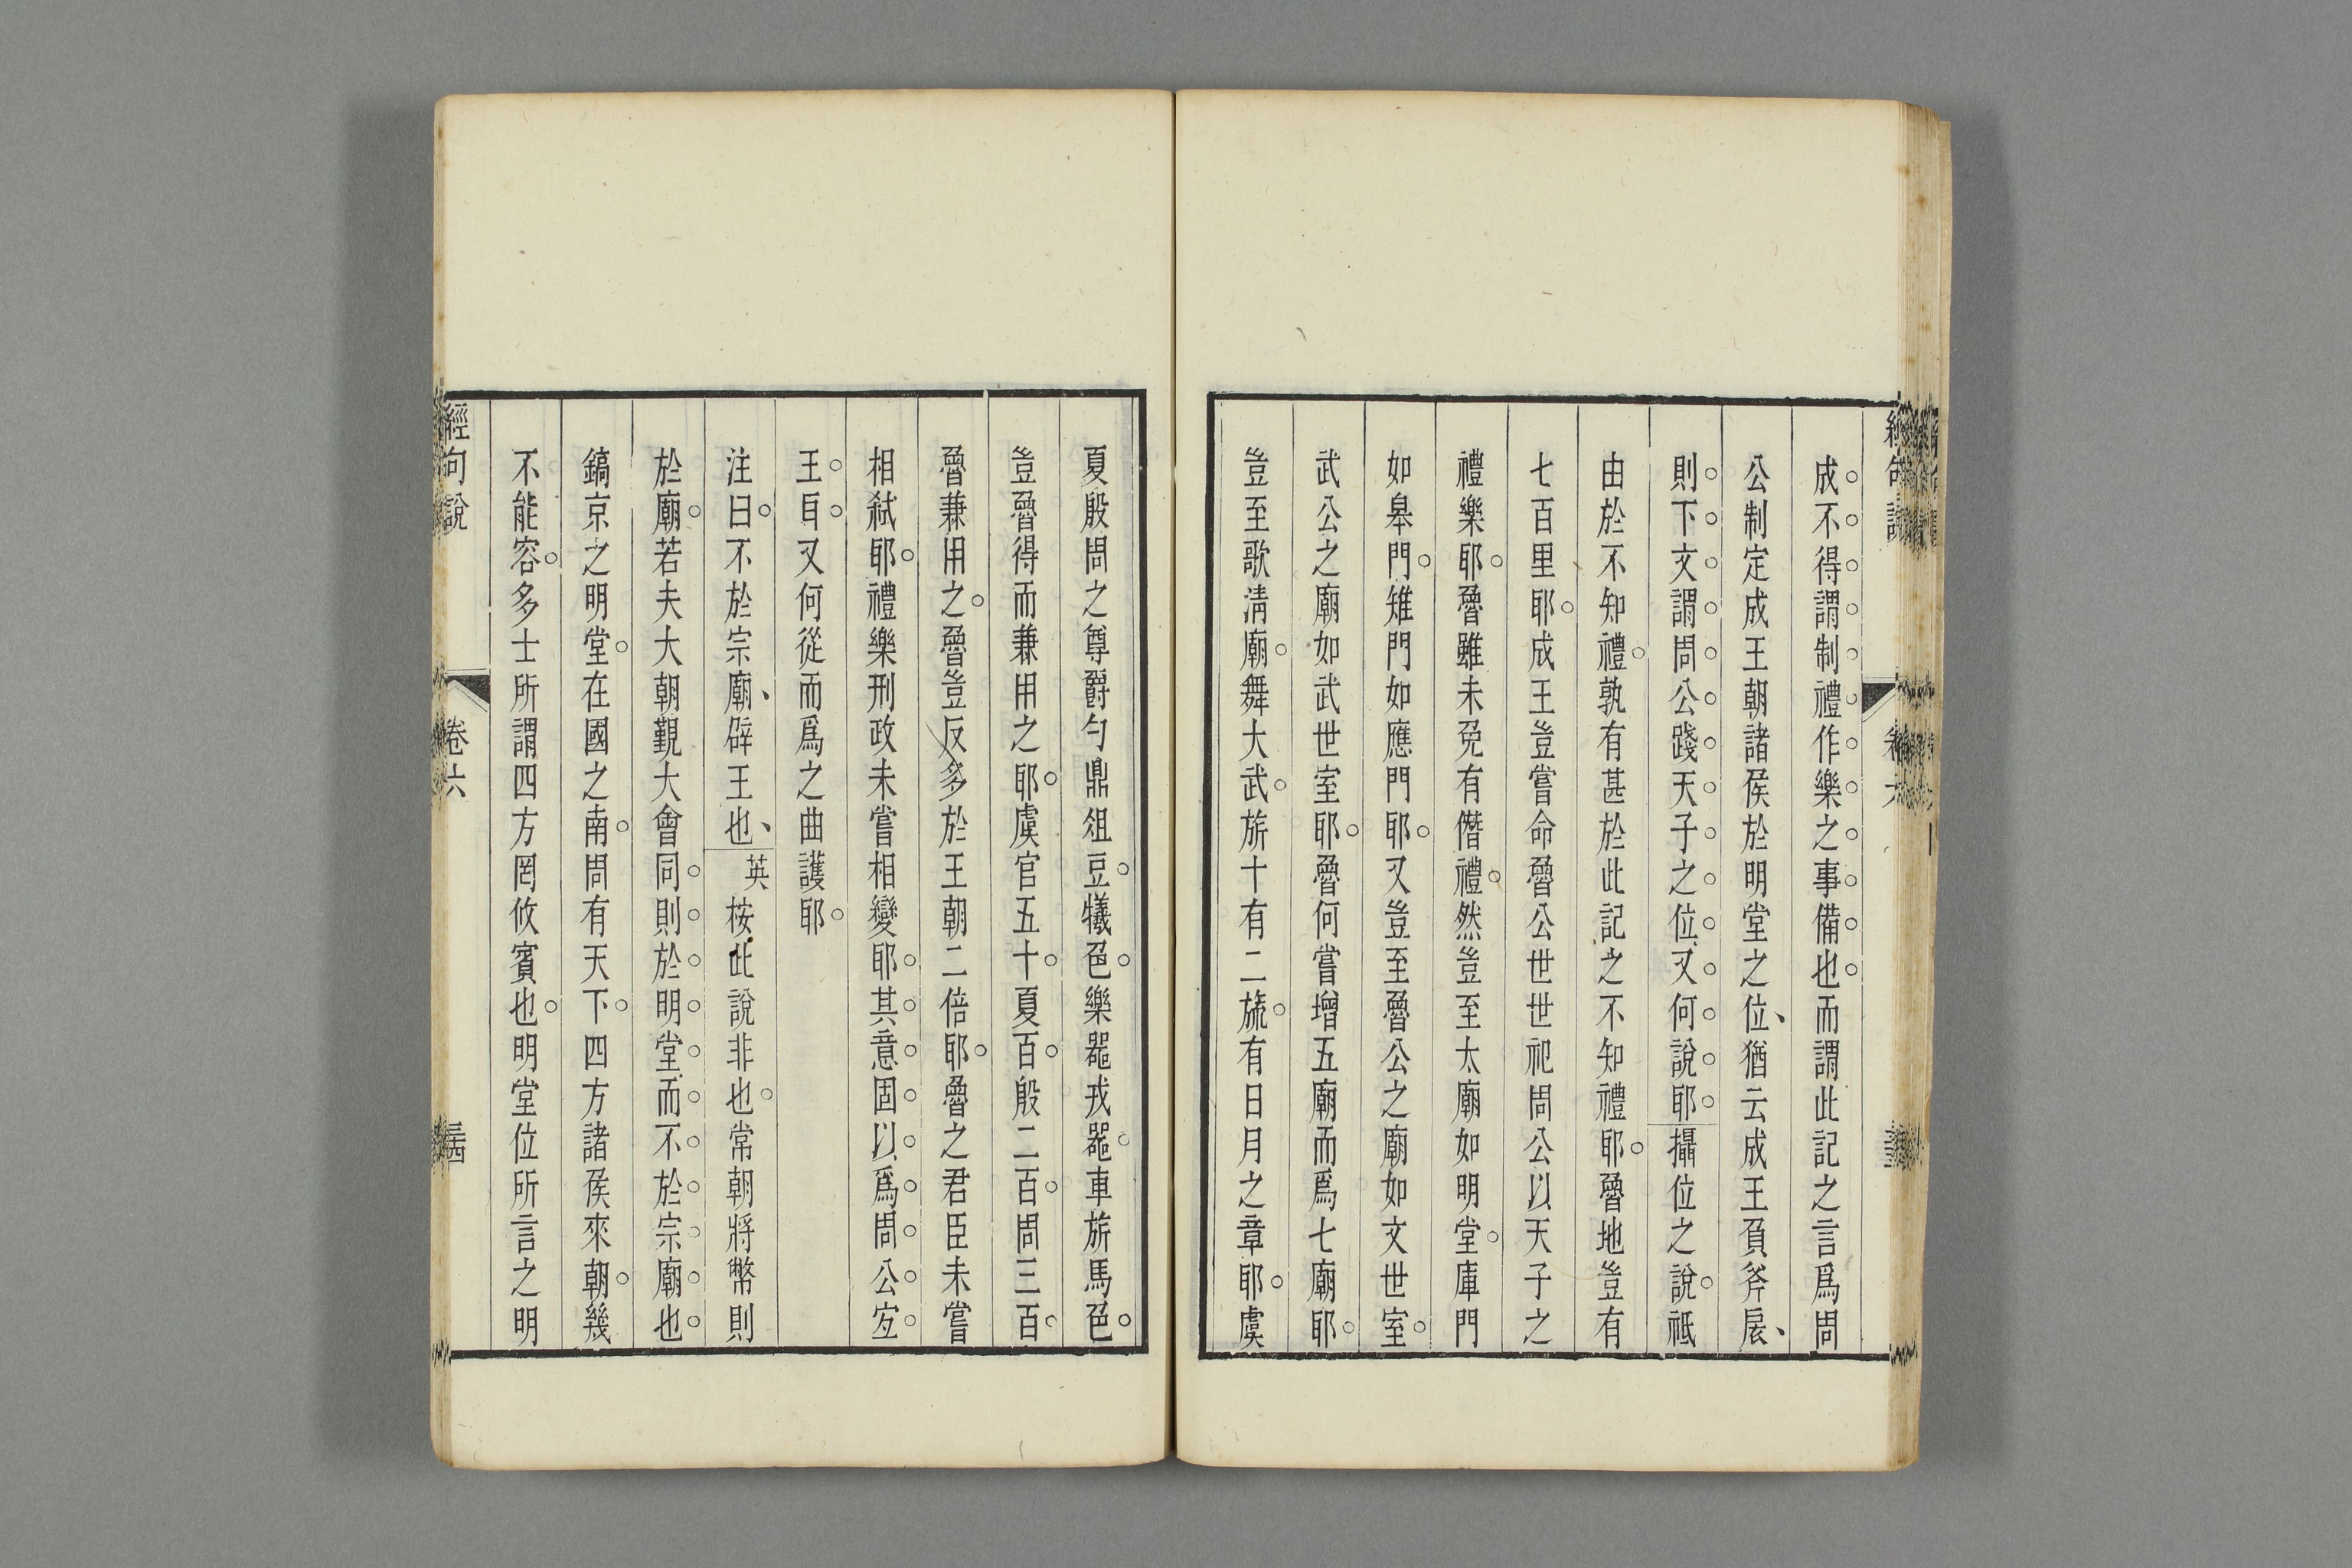 成不得謂制禮作樂之事備也而謂此記之言爲周
公制定成王朝諸侯於明堂之位猶云成王負斧扆
則下文謂周公踐天子之位又何說耶攝位之說祗
由於不知禮孰有甚於此記之不知禮耶魯地豈有
七百里耶成王豈嘗命魯公世世祀周公以天子之
禮樂耶魯雖未免有僭禮然豈至太廟如明堂庫門
如皋門雉門如應門耶又豈至魯公之廟如文世室
武公之廟如武世室耶魯何嘗增五廟而爲七廟耶
豈至歌淸廟舞大武旂十有二旒有日月之章耶虞
夏殷周之尊爵勺鼎俎豆犧色樂器戎器車旂馬色
豈魯得而兼用之耶虞官五十夏百殷二百周三百
魯兼用之魯豈反多於王朝二倍耶魯之君臣未嘗
相弑耶禮樂刑政未嘗相變耶其意固以爲周公宐
王耳又何從而爲之曲護耶
注曰不於宗廟辟王也英按此說非也常朝將幣則
於廟若夫大朝覲大會同則於明堂而不於宗廟也
鎬京之明堂在國之南周有天下四方諸侯來朝幾
不能容多士所謂四方罔攸賓也明堂位所言之明
經句說
卷六